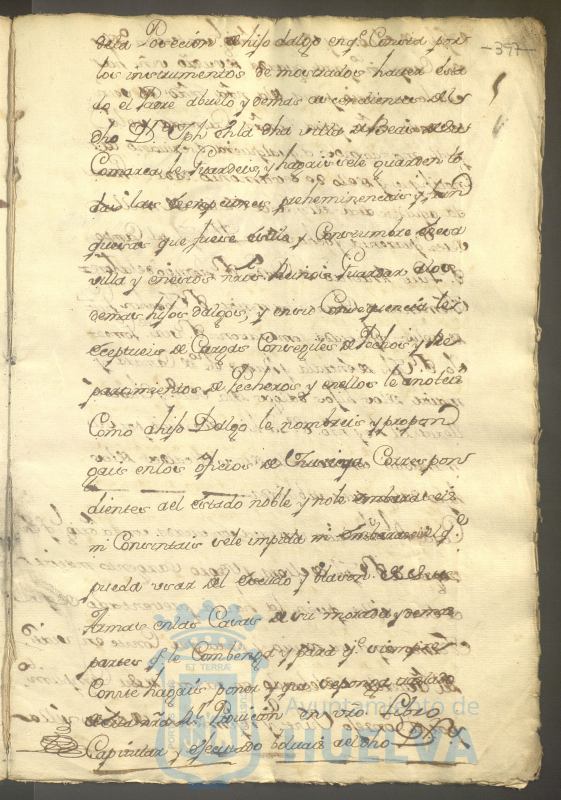 -397-
de la Posecion de hijo dalgo en qe. Consta por
los instrumentos de mostrados haver esta
do el Padre abuelo y demas ascendientes del
dho Dn. Jph en la dha villa de Beas
Comarca le Guardeis, y hagais se le guarden to
das las Exempciones preheminencias y fran
quesas que fuere estilo y Constumbre de esa
villa y en estos nros. Reinos Guardar a los
demas hijos dalgos, y en su Consequencia le
Exceptueis de Cargas Conseqiles de Pechos y Re
partimientos de Pecheros y en ellos le anoteis
Como a hijo Dalgo le nombreis y propon
gais en los oficios de Justicia Correspon
dientes al estado noble y no le embaraseis
ni Consintais se le impida ni embarase el qe.
pueda usar del Escudo y blason de sus
Armas en las Casas de su morada y demas
partes qe. le Combenga y para qe. siempre
Conste hagais poner y qe. se ponga traslado
de esta nra. Rl. Provicion en vro. Libro
Capitular y efectuado bolvais al dho Dn.
ET TERRAE
Ayuntamiento de
HUELVA